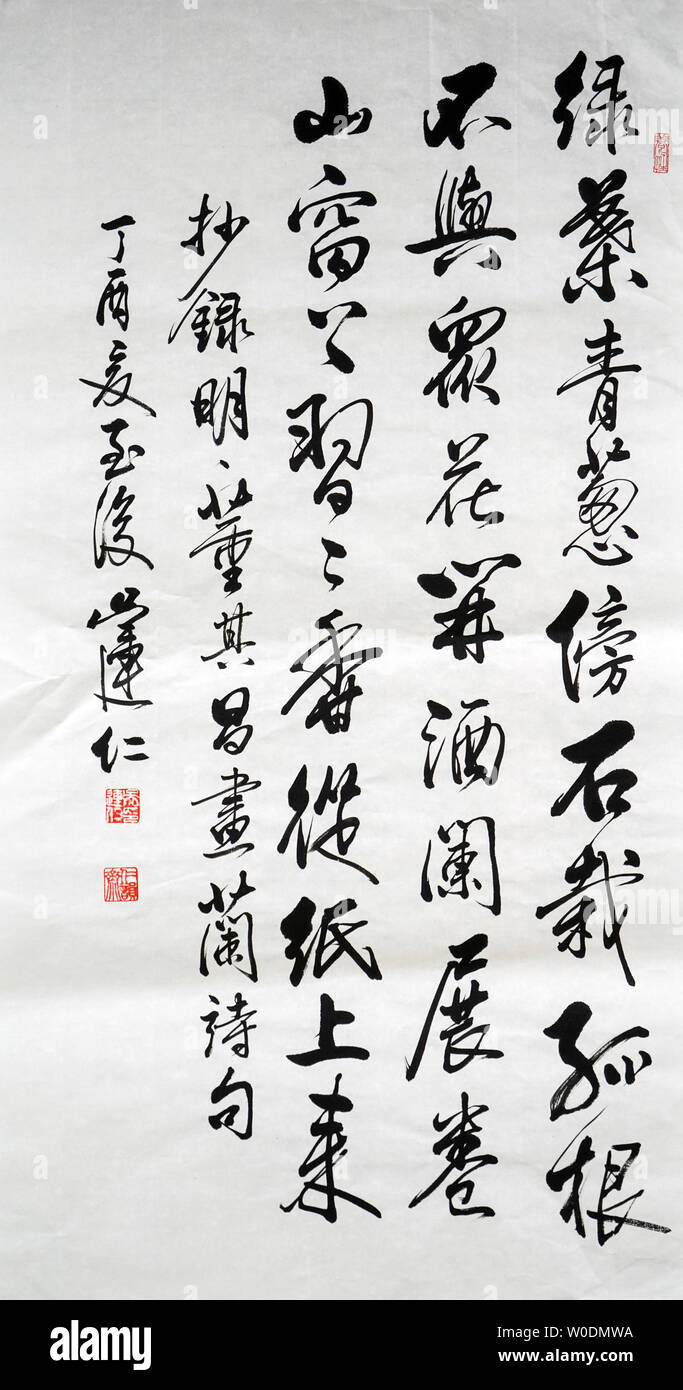 绿葉青葱傍石栽孤根
不與眾花開酒闌展卷
山窗下習〻香從紙上来
抄録明董其昌畫蘭詩句
丁酉夏至後 建仁
alamy
Image ID: W0DMWA
www.alamy.com